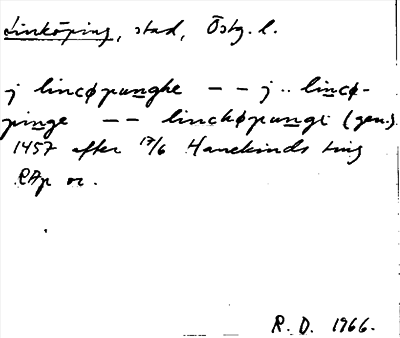 Linköping, stad, Östg. l.
j lincøpunghe -- j.. lincø-
pinge -- linckøpungi (gen.)
1457 efter 17/6 Hanekinds ting
RAp or.
R. D. 1966.